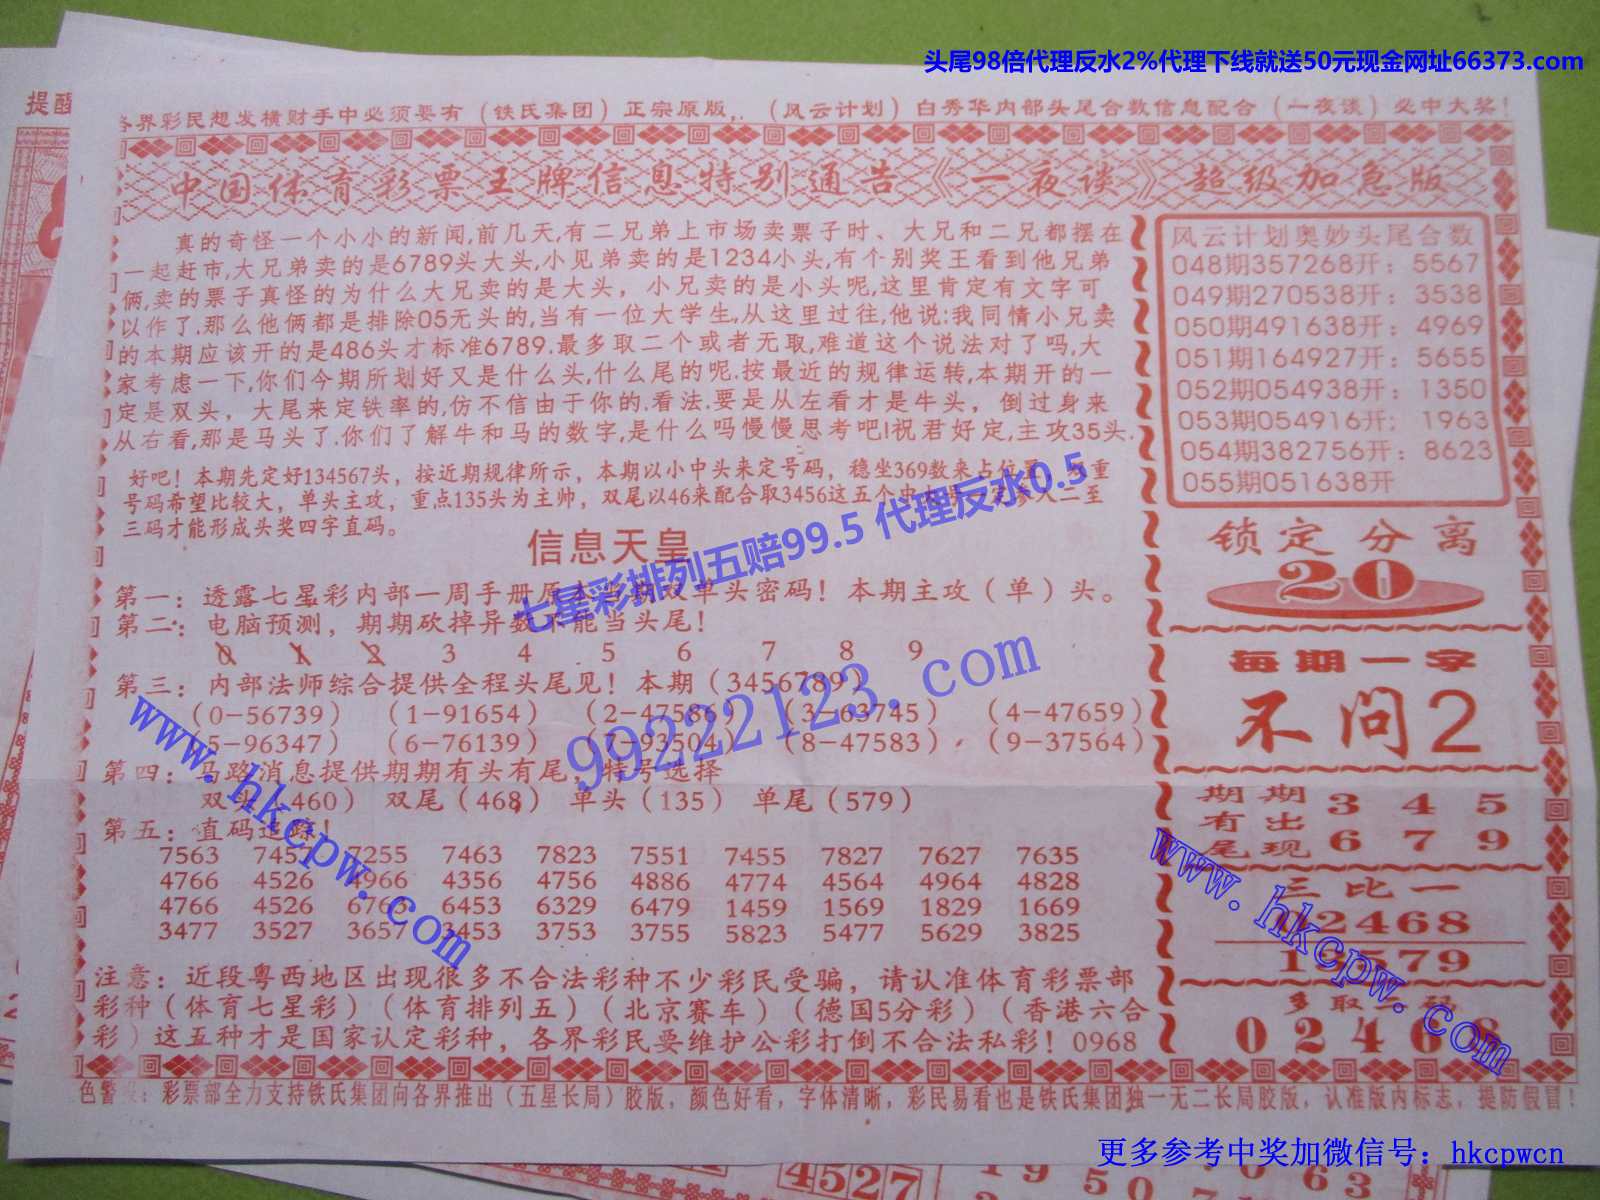 头尾98倍代理反水2%代理下线就送50元现金网址66373.com
提醒
各界彩民想发横财手中必须要有（铁氏集团）正宗原版，.（风云计划）白秀华内部头尾合数信息配合（一夜谈）必中大奖！
中国体育彩票王牌信息特别通告《一夜谈》超级加急版
真的奇怪一个小小的新闻,前几天,有二兄弟上市场卖票子时、大兄和二兄都摆在
一起赶市,大兄弟卖的是6789头大头,小见弟卖的是1234小头,有个别奖王看到他兄弟
俩,卖的票子真怪的为什么大兄卖的是大头，小兄卖的是小头呢,这里肯定有文字可
以作了.那么他俩都是排除05无头的,当有一位大学生,从这里过往,他说:我同情小兄卖
的本期应该开的是486头才标准6789.最多取二个或者无取,难道这个说法对了吗,大
家考虑一下,你们今期所划好又是什么头,什么尾的呢.按最近的规律运转,本期开的一
定是双头，大尾来定铁率的,仿不信由于你的.看法.要是从左看才是牛头，倒过身来
从右看,那是马头了.你们了解牛和马的数字,是什么吗慢慢思考吧!祝君好定,主攻35头.
好吧！本期先定好134567头，按近期规律所示，本期以小中头来定号码，稳坐369数来占位置
号码希望比较大，单头主攻，重点135头为主帅，双尾以46来配合取3456这五个中
三码才能形成头奖四字直码。
信息天皇
七星彩排列五赔99.5 代理反水0.5
第一：透露七星彩内部一周手册原本当期双单头密码！本期主攻（单）头。
第二：电脑预测，期期砍掉异数不能当头尾！
0 1 2 3 4 5 6 7 8 9
第三：内部法师综合提供全程头尾见！本期（3456789）
（0-56739）（1-91654）（2-47586）（3-63745）（4-47659）
（5-96347）（6-76139）（7-93504）（8-47583）（9-37564）
99222123.com
第四：马路消息提供期期有头有尾，特号选择
双头（460）双尾（468）单头（135）单尾（579）
第五：直码追踪！
7563 745 7255 7463 7823 7551 7455 7827 7627 7635
4766 4526 4966 4356 4756 4886 4774 4564 4964 4828
4766 4526 676 6453 6329 6479 1459 1569 1829 1669
3477 3527 3657 3453 3753 3755 5823 5477 5629 3825
www.hkcpw.com
注意：近段粤西地区出现很多不合法彩种不少彩民受骗，请认准体育彩票部
彩种（体育七星彩）（体育排列五）（北京赛车）（德国5分彩）（香港六合
彩）这五种才是国家认定彩种，各界彩民要维护公彩打倒不合法私彩！0968
风云计划奥妙头尾合数
048期357268开：5567
049期270538开：3538
050期491638开：4969
051期164927开：5655
052期054938开：1350
053期054916开；1963
054期382756开：8623
055期051638开
锁定分离
20
每期一字
不问2
期期 3 4 5
有出
尾现 6 7 9
三比一
02468
13579
www.hkcpw.com
多取二码
02468
色警报：彩票部全力支持铁氏集团向各界推出（五星长局）胶版，颜色好看，字体清晰，彩民易看也是铁氏集团独一无二长局胶版，认准版内标志，提防假冒！
更多参考中奖加微信号：hkcpwcn
4527